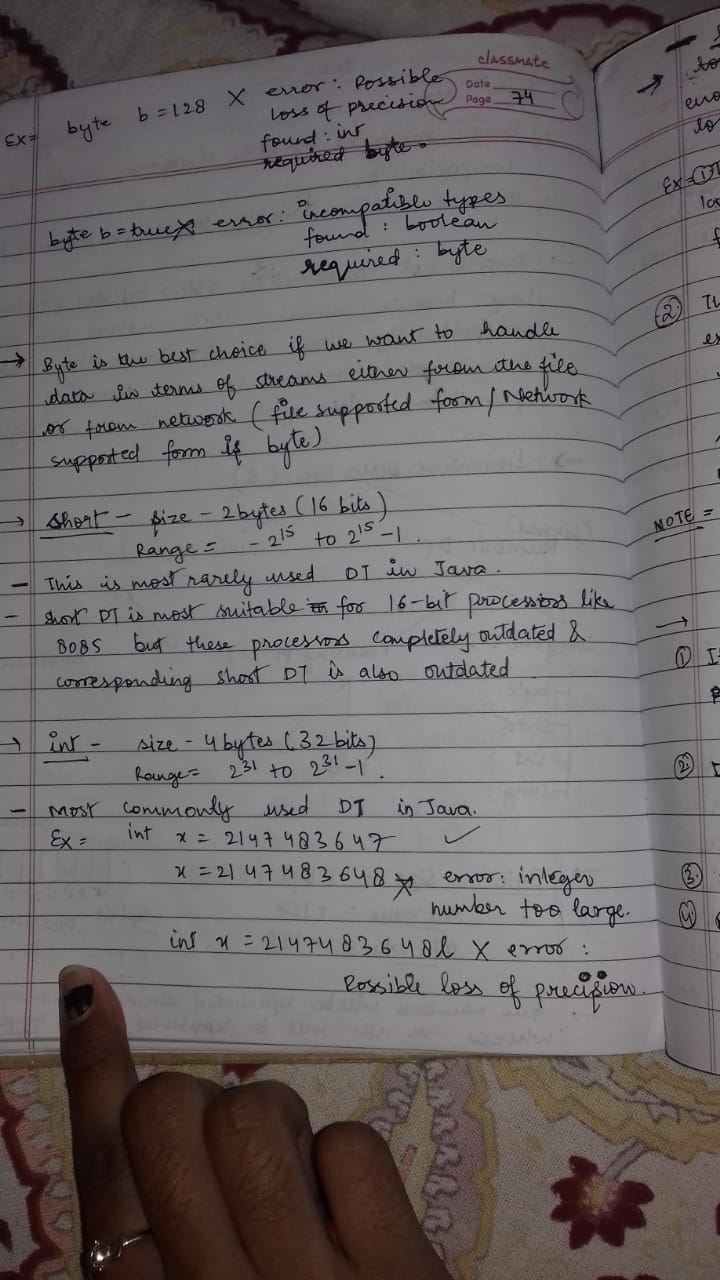 classmate
Date
Page 74
Ex= byte b=128 X error: Possible
loss of precision
found: int
required byte.
byte b=true X error: incompatible types
found: boolean
required: byte
→ Byte is the best choice if we want to handle
data in terms of streams either from the file
or from network (file supported form/Network
supported form is byte)
→ Short - size - 2bytes (16 bits)
Range = -2^15 to 2^15-1.
- This is most rarely used DT in Java.
- short DT is most suitable for 16-bit processors like
8085 but these processors completely outdated &
corresponding short DT is also outdated
→ int - size - 4bytes (32bits)
Range= 2^31 to 2^31-1.
- Most commonly used DT in Java.
Ex = int x = 2147483647 ✓
x = 2147483648 X error: integer
number too large.
int x = 2147483648l X error:
Possible loss of precision.
→
Ex=
②
NOTE =
→
① I
②
③
④